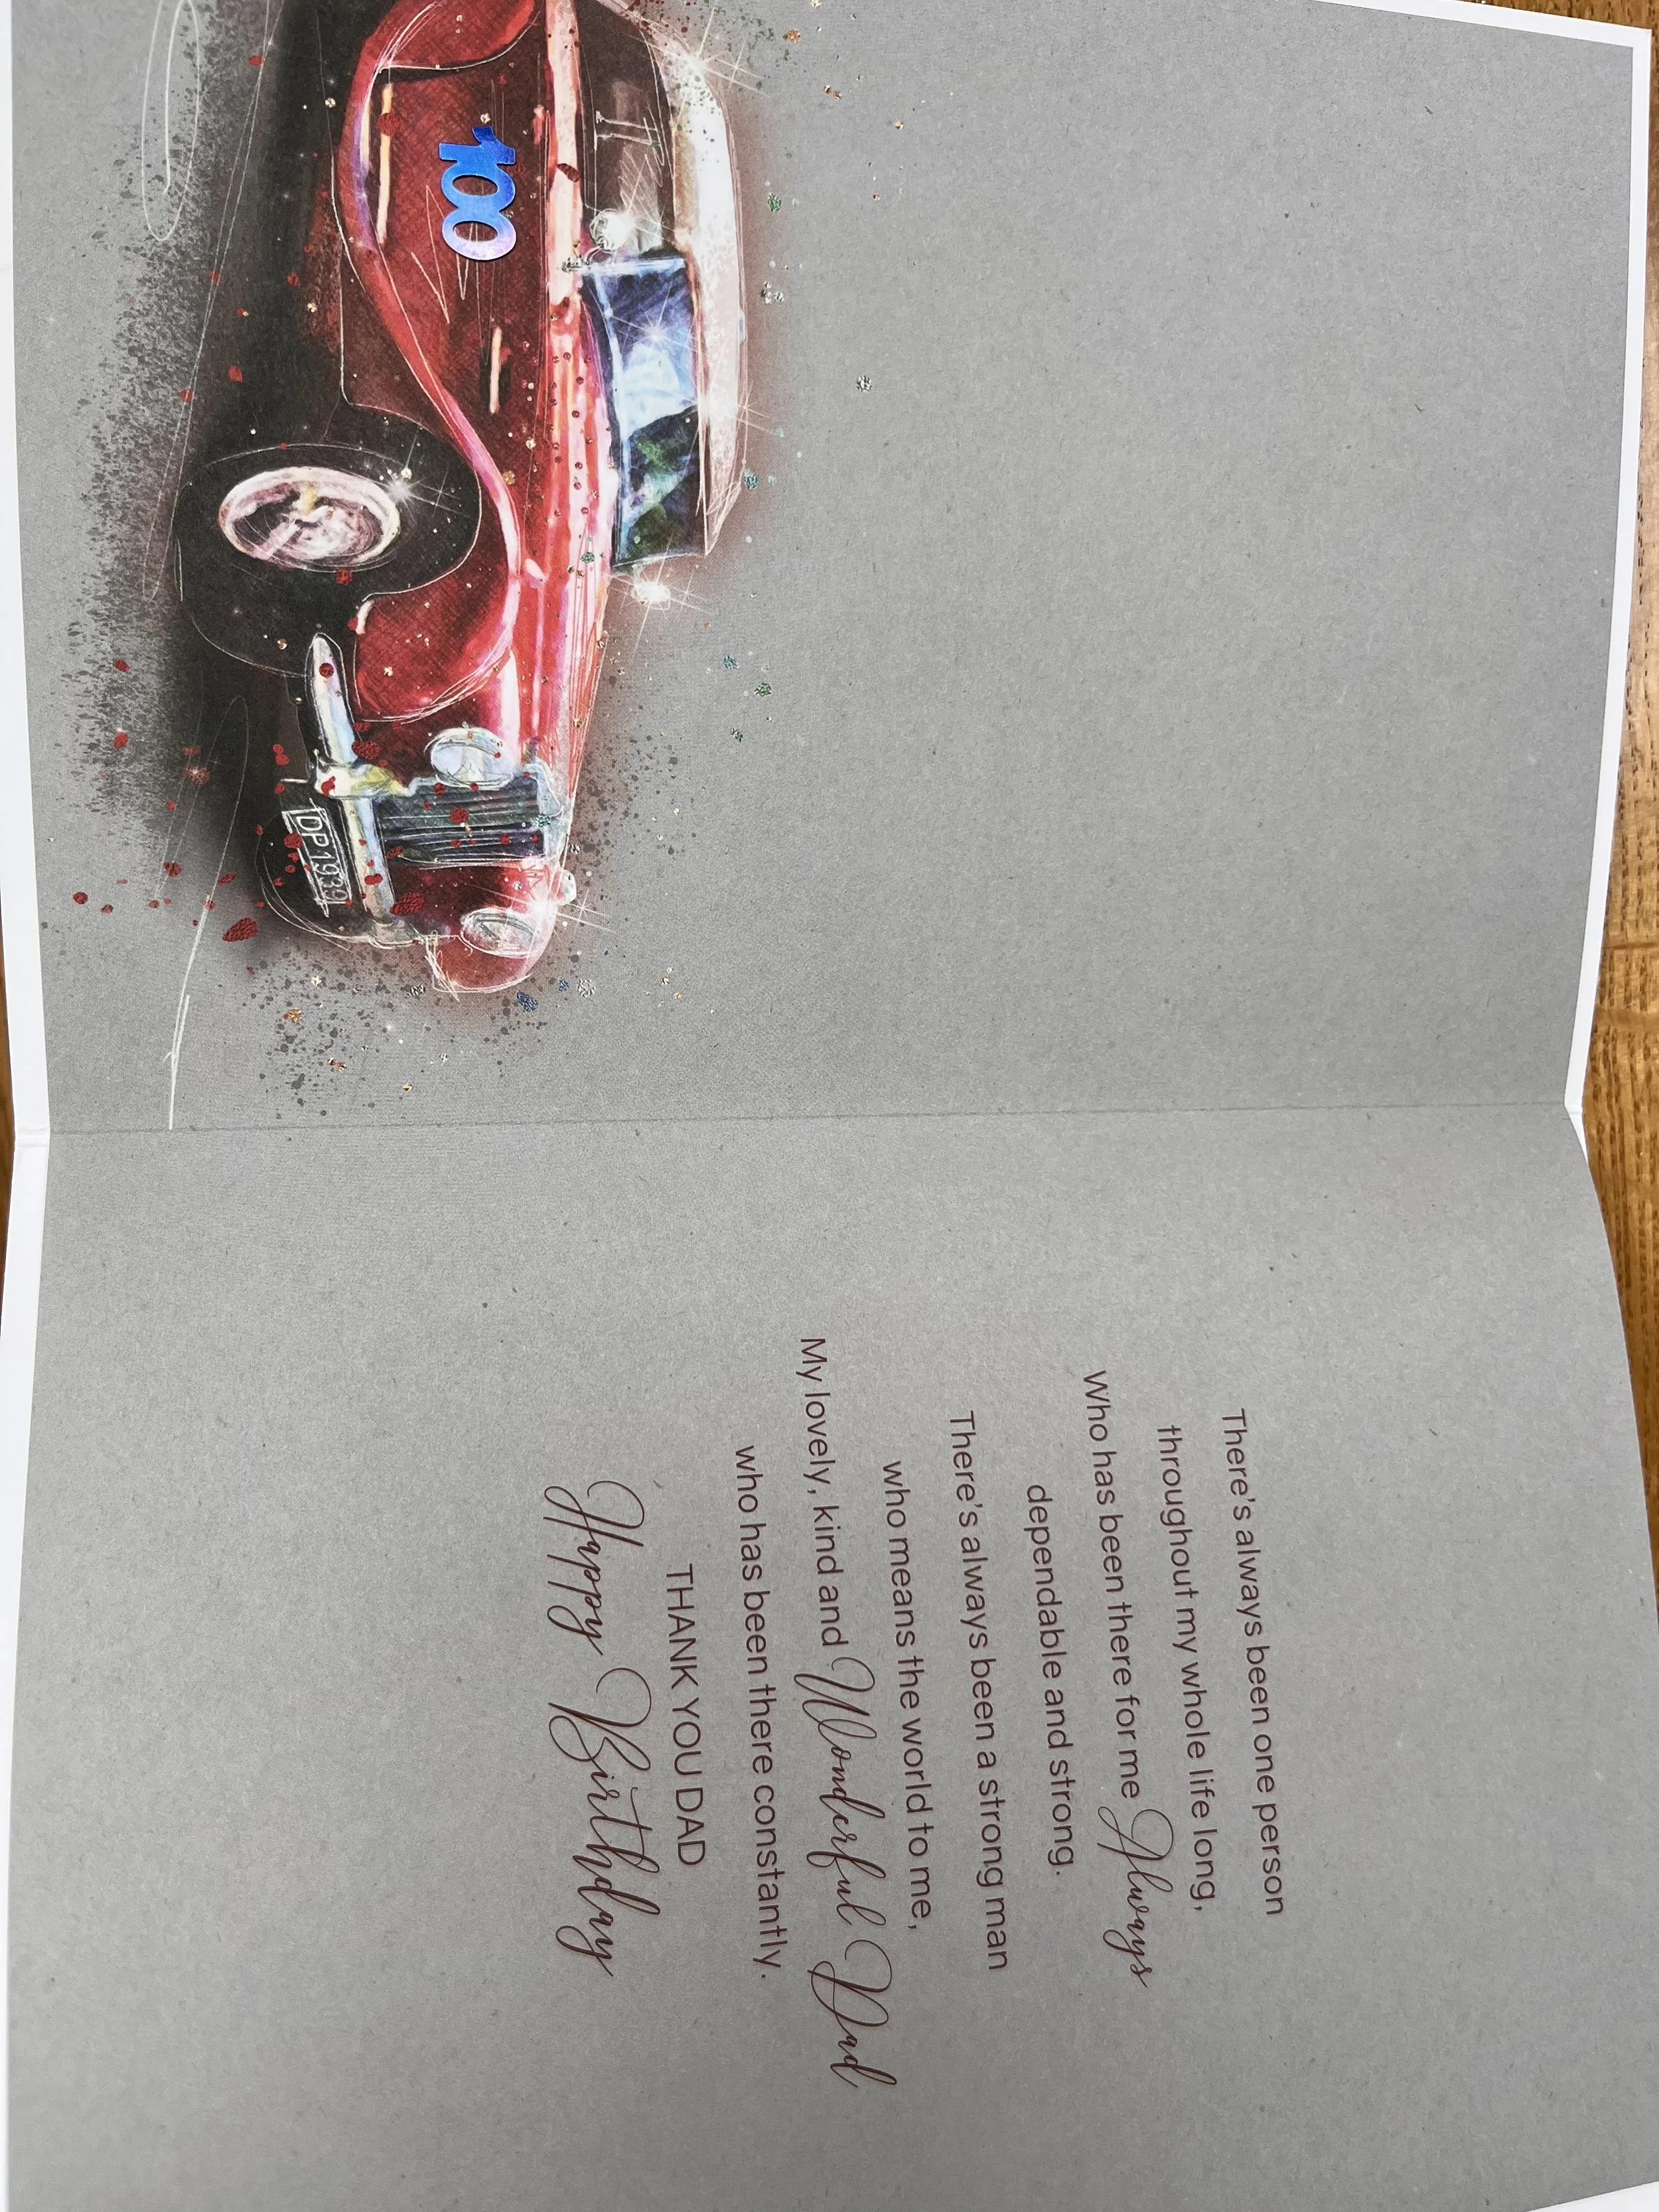 100
DP1939
There's always been one person
throughout my whole life long,
Who has been there for me Always
dependable and strong.
There's always been a strong man
who means the world to me,
My lovely, kind and Wonderful Dad
who has been there constantly.
THANK YOU DAD
Happy Birthday